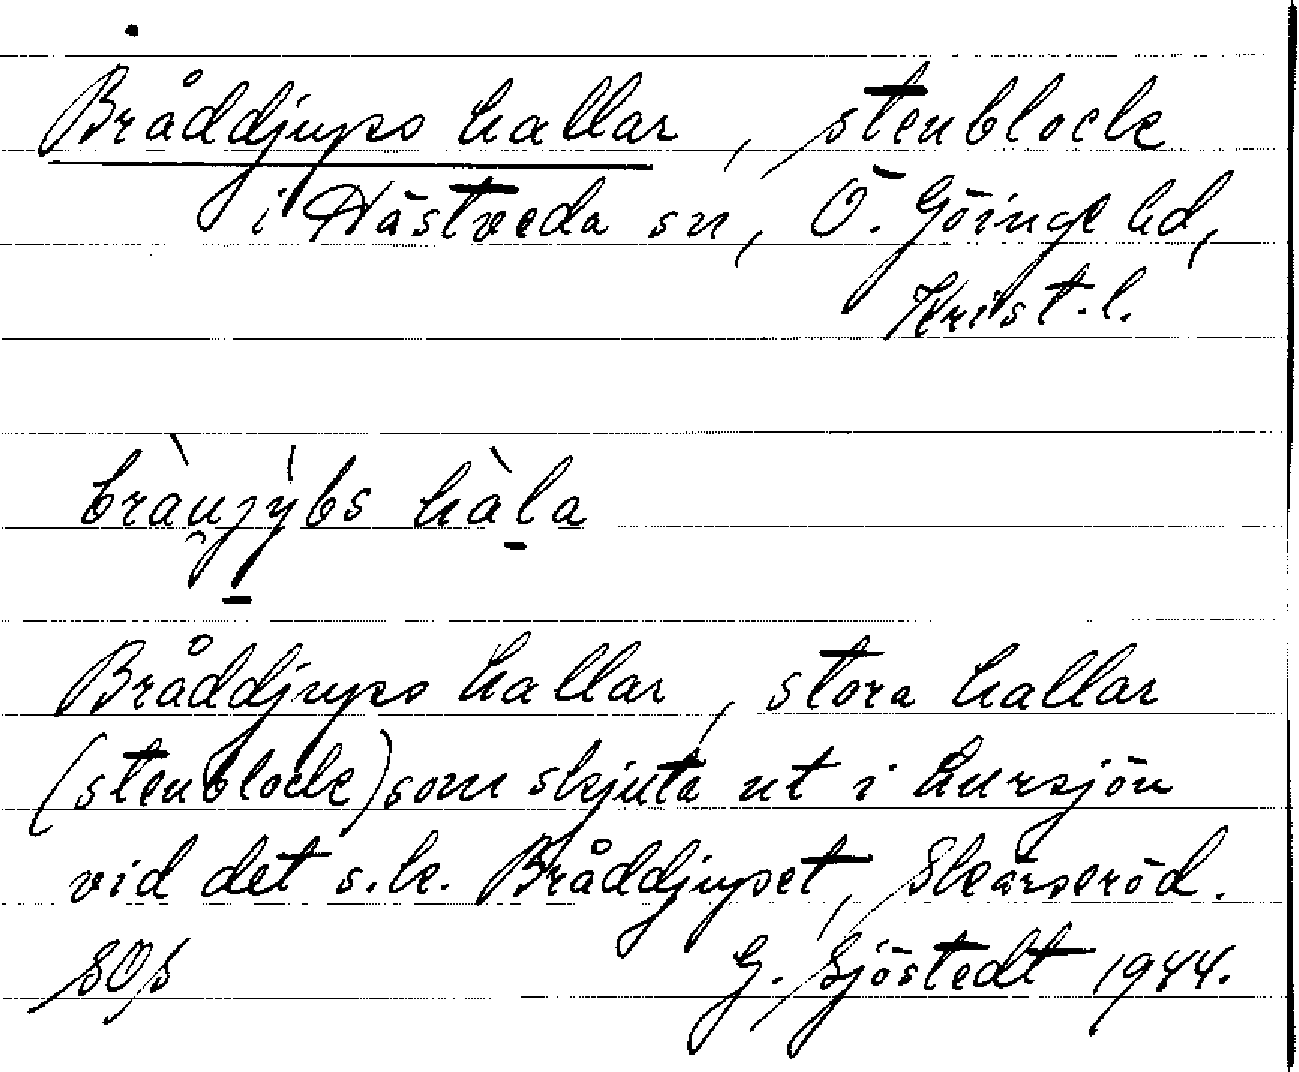 Bråddjups hallar, stenblock
i Hästveda sn, Ö. Göinge hd,
Krist.l.
bràu̯jỳbs hàla
Bråddjups hallar, stora hallar
(stenblock) som skjuta ut i Lursjön
vid det s.k. Bråddjupet, Skärseröd.
SOS G. Sjöstedt 1944.